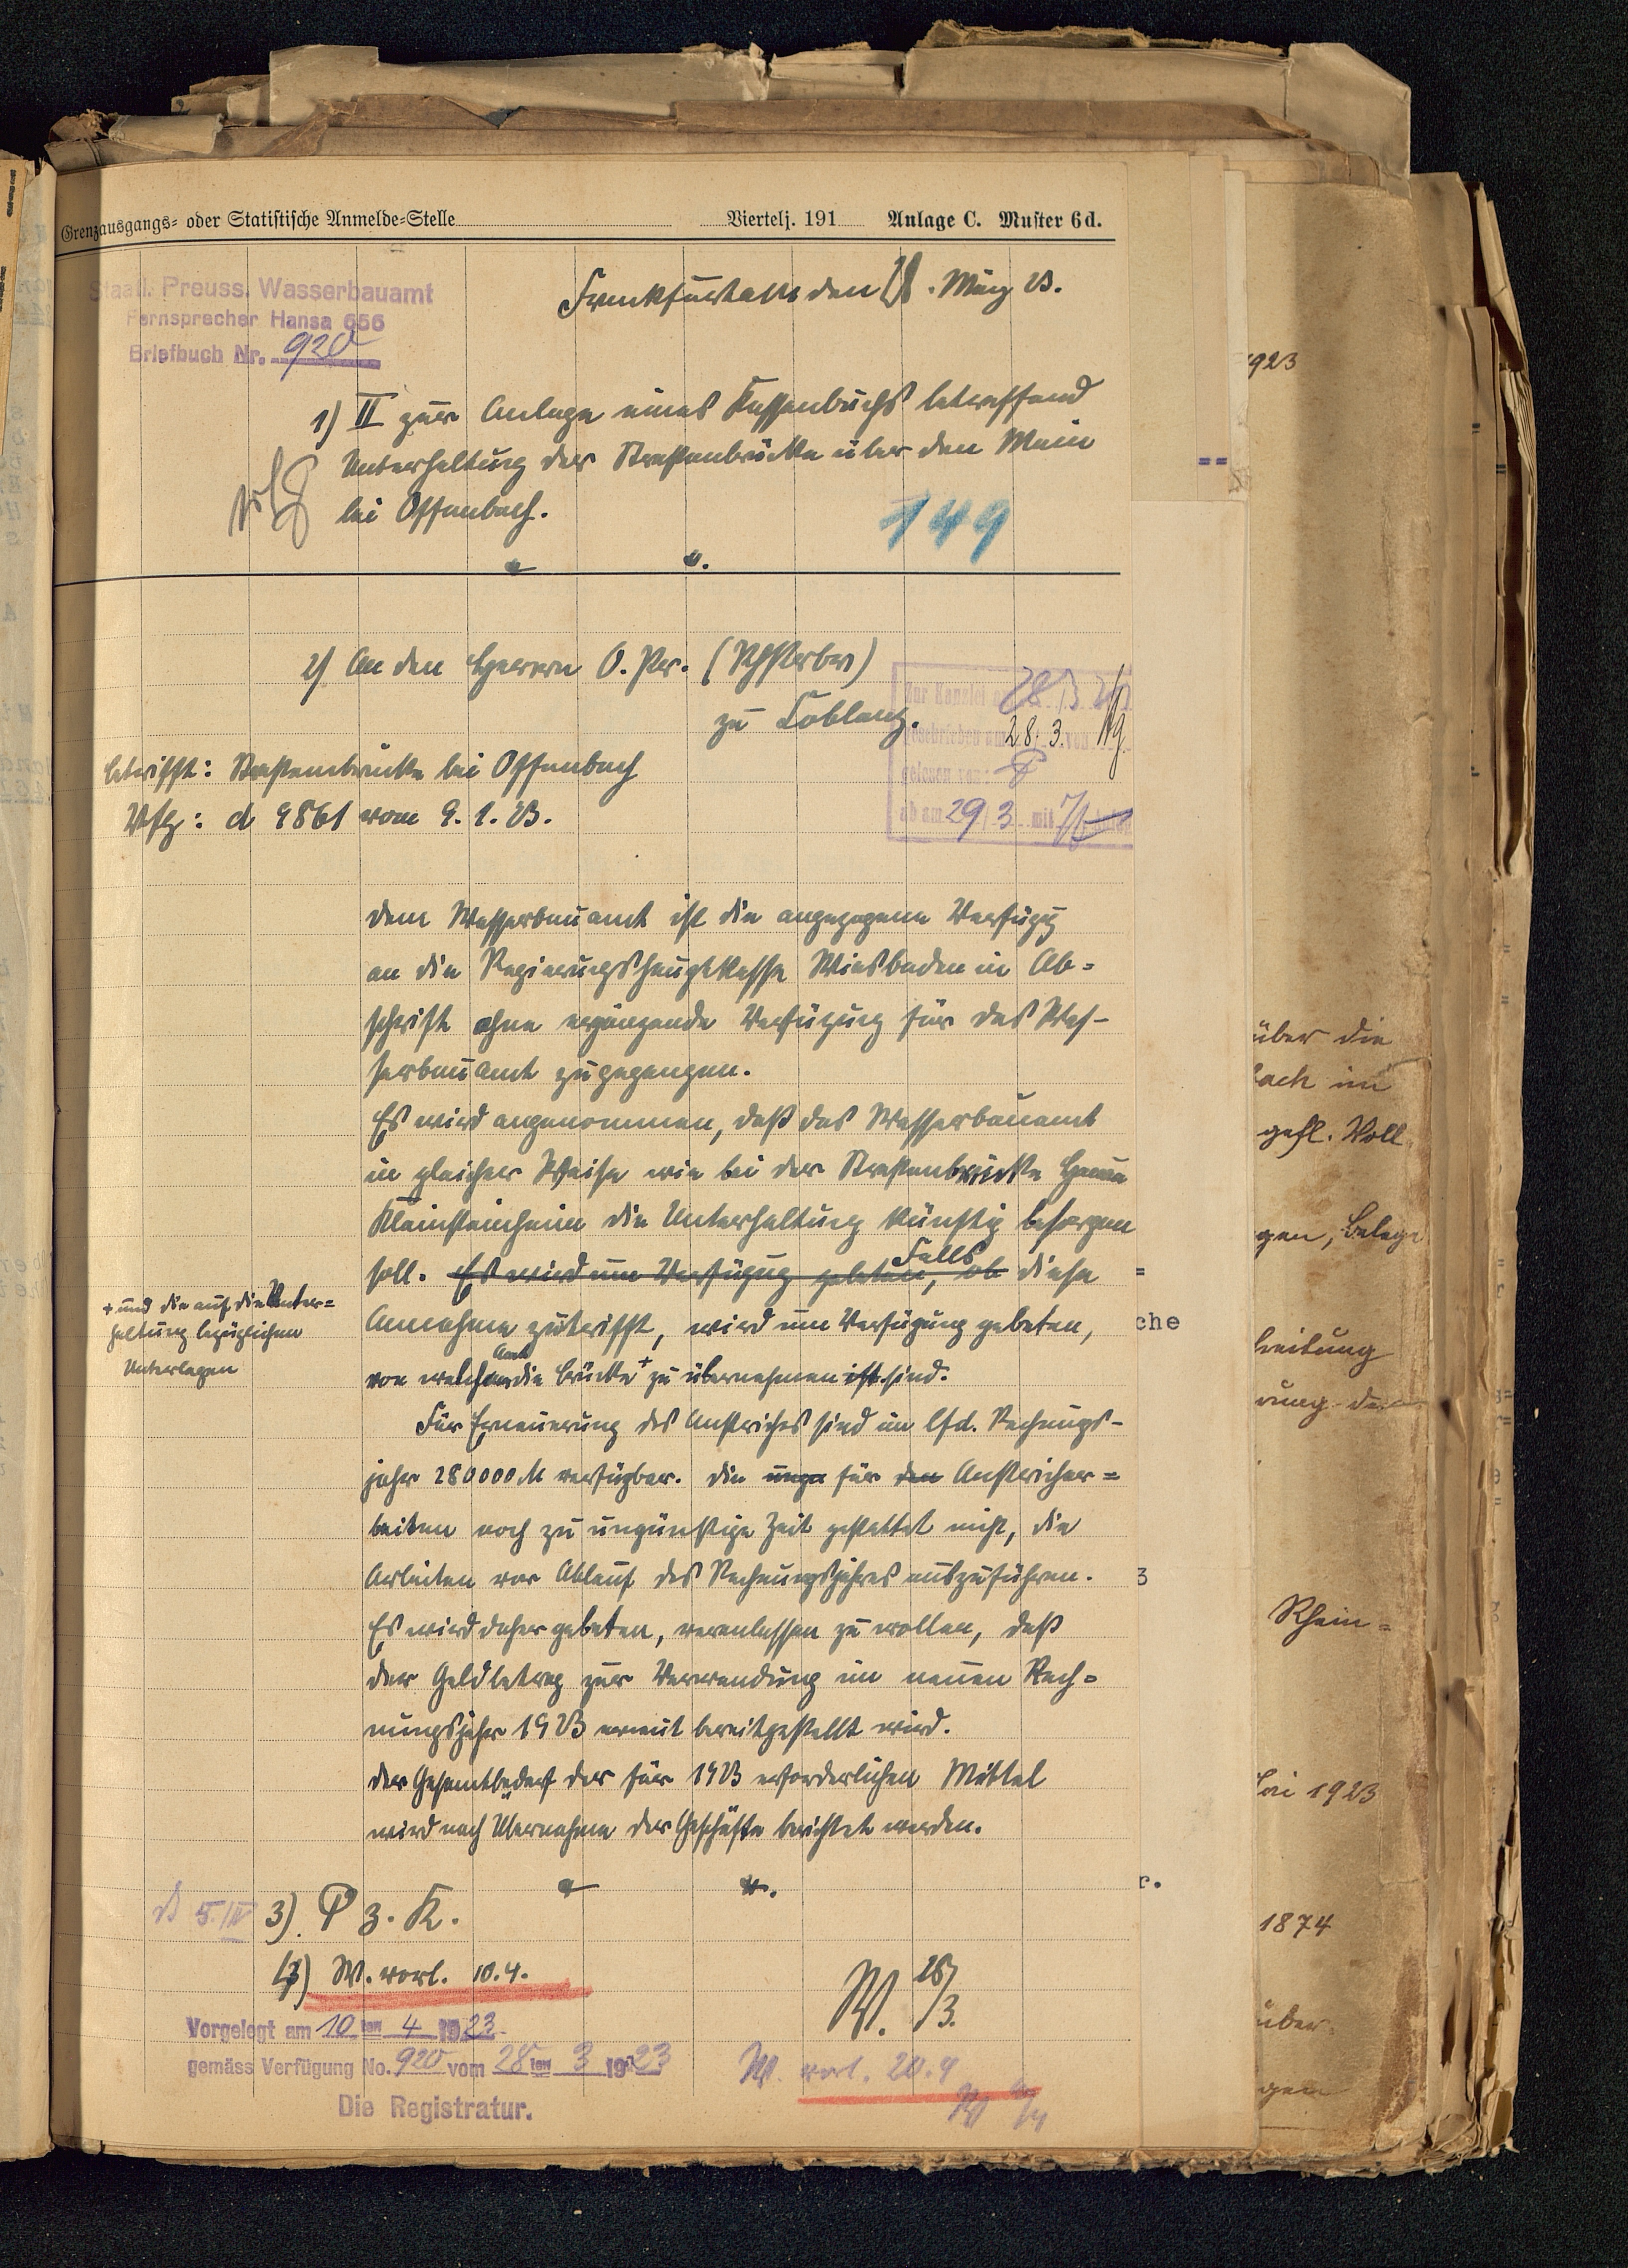 Grenzausgangs- oder Statistische Anmelde-Stelle Viertelj. 191 Anlage C. Muster 6d.
Staatl. Preuss. Wasserbauamt
Fernsprecher Hansa 656
Briefbuch Nr. 920
Frankfurt a/M den 28. März 23.
1) II zur Anlage eines Kassenbuchs betreffend
Unterhaltung der Straßenbrücke über den Main
bei Offenbach.
149
2) An den Herrn O. Pr. (Rhstrbv)
zu Coblenz.
Zur Kanzlei am 28/3
geschrieben am 28.3. von
gelesen von:
ab am 29/3 mit
betrifft: Straßenbrücke bei Offenbach
Vfg: d 9861 vom 9.1.23.
Dem Wasserbauamt ist die angezogene Verfügg
an die Regierungshauptkasse Wiesbaden in Ab=
schrift ohne ergänzende Verfügung für das Was-
serbauamt zugegangen.
Es wird angenommen, daß das Wasserbauamt
in gleicher Weise wie bei der Straßenbrücke Hanau
Kleinsteinheim die Unterhaltung künftig besorgen
soll. Es wird um Verfügung gebeten, ob Falls diese
Annahme zutrifft, wird um Verfügung gebeten,
von welchem Amt die Brücke + zu übernehmen ist sind.
+ und die auf die Unter=
haltung bezüglichen
Unterlagen
Für Erneuerung des Anstriches sind im lfd. Rechnungs-
jahr 280000 M verfügbar. Die unge für den Anstricher=
beiten noch zu ungünstige Zeit gestattet nicht, die
Arbeiten vor Ablauf des Rechnungsjahres auszuführen.
Es wird daher gebeten, veranlassen zu wollen, daß
der Geldbetrag zur Verwendung im neuen Rech=
nungsjahr 1923 erneut bereitgestellt wird.
Der Gesamtbedarf der für 1923 erforderlichen Mittel
wird nach Übernahme der Geschäfte berichtet werden.
5./IV 3). P z. K.
4) W. vorl. 10.4.
W. 28/3.
Vorgelegt am 10ten 4 1923
gemäss Verfügung No. 920 vom 28ten 3 1923
Die Registratur.
W. vorl. 20.4
1923
über die
bach im
gefl. Voll
gen, Belege
=
che
breitung
3
Rhein=
Mai 1923
r.
1874
über
gen